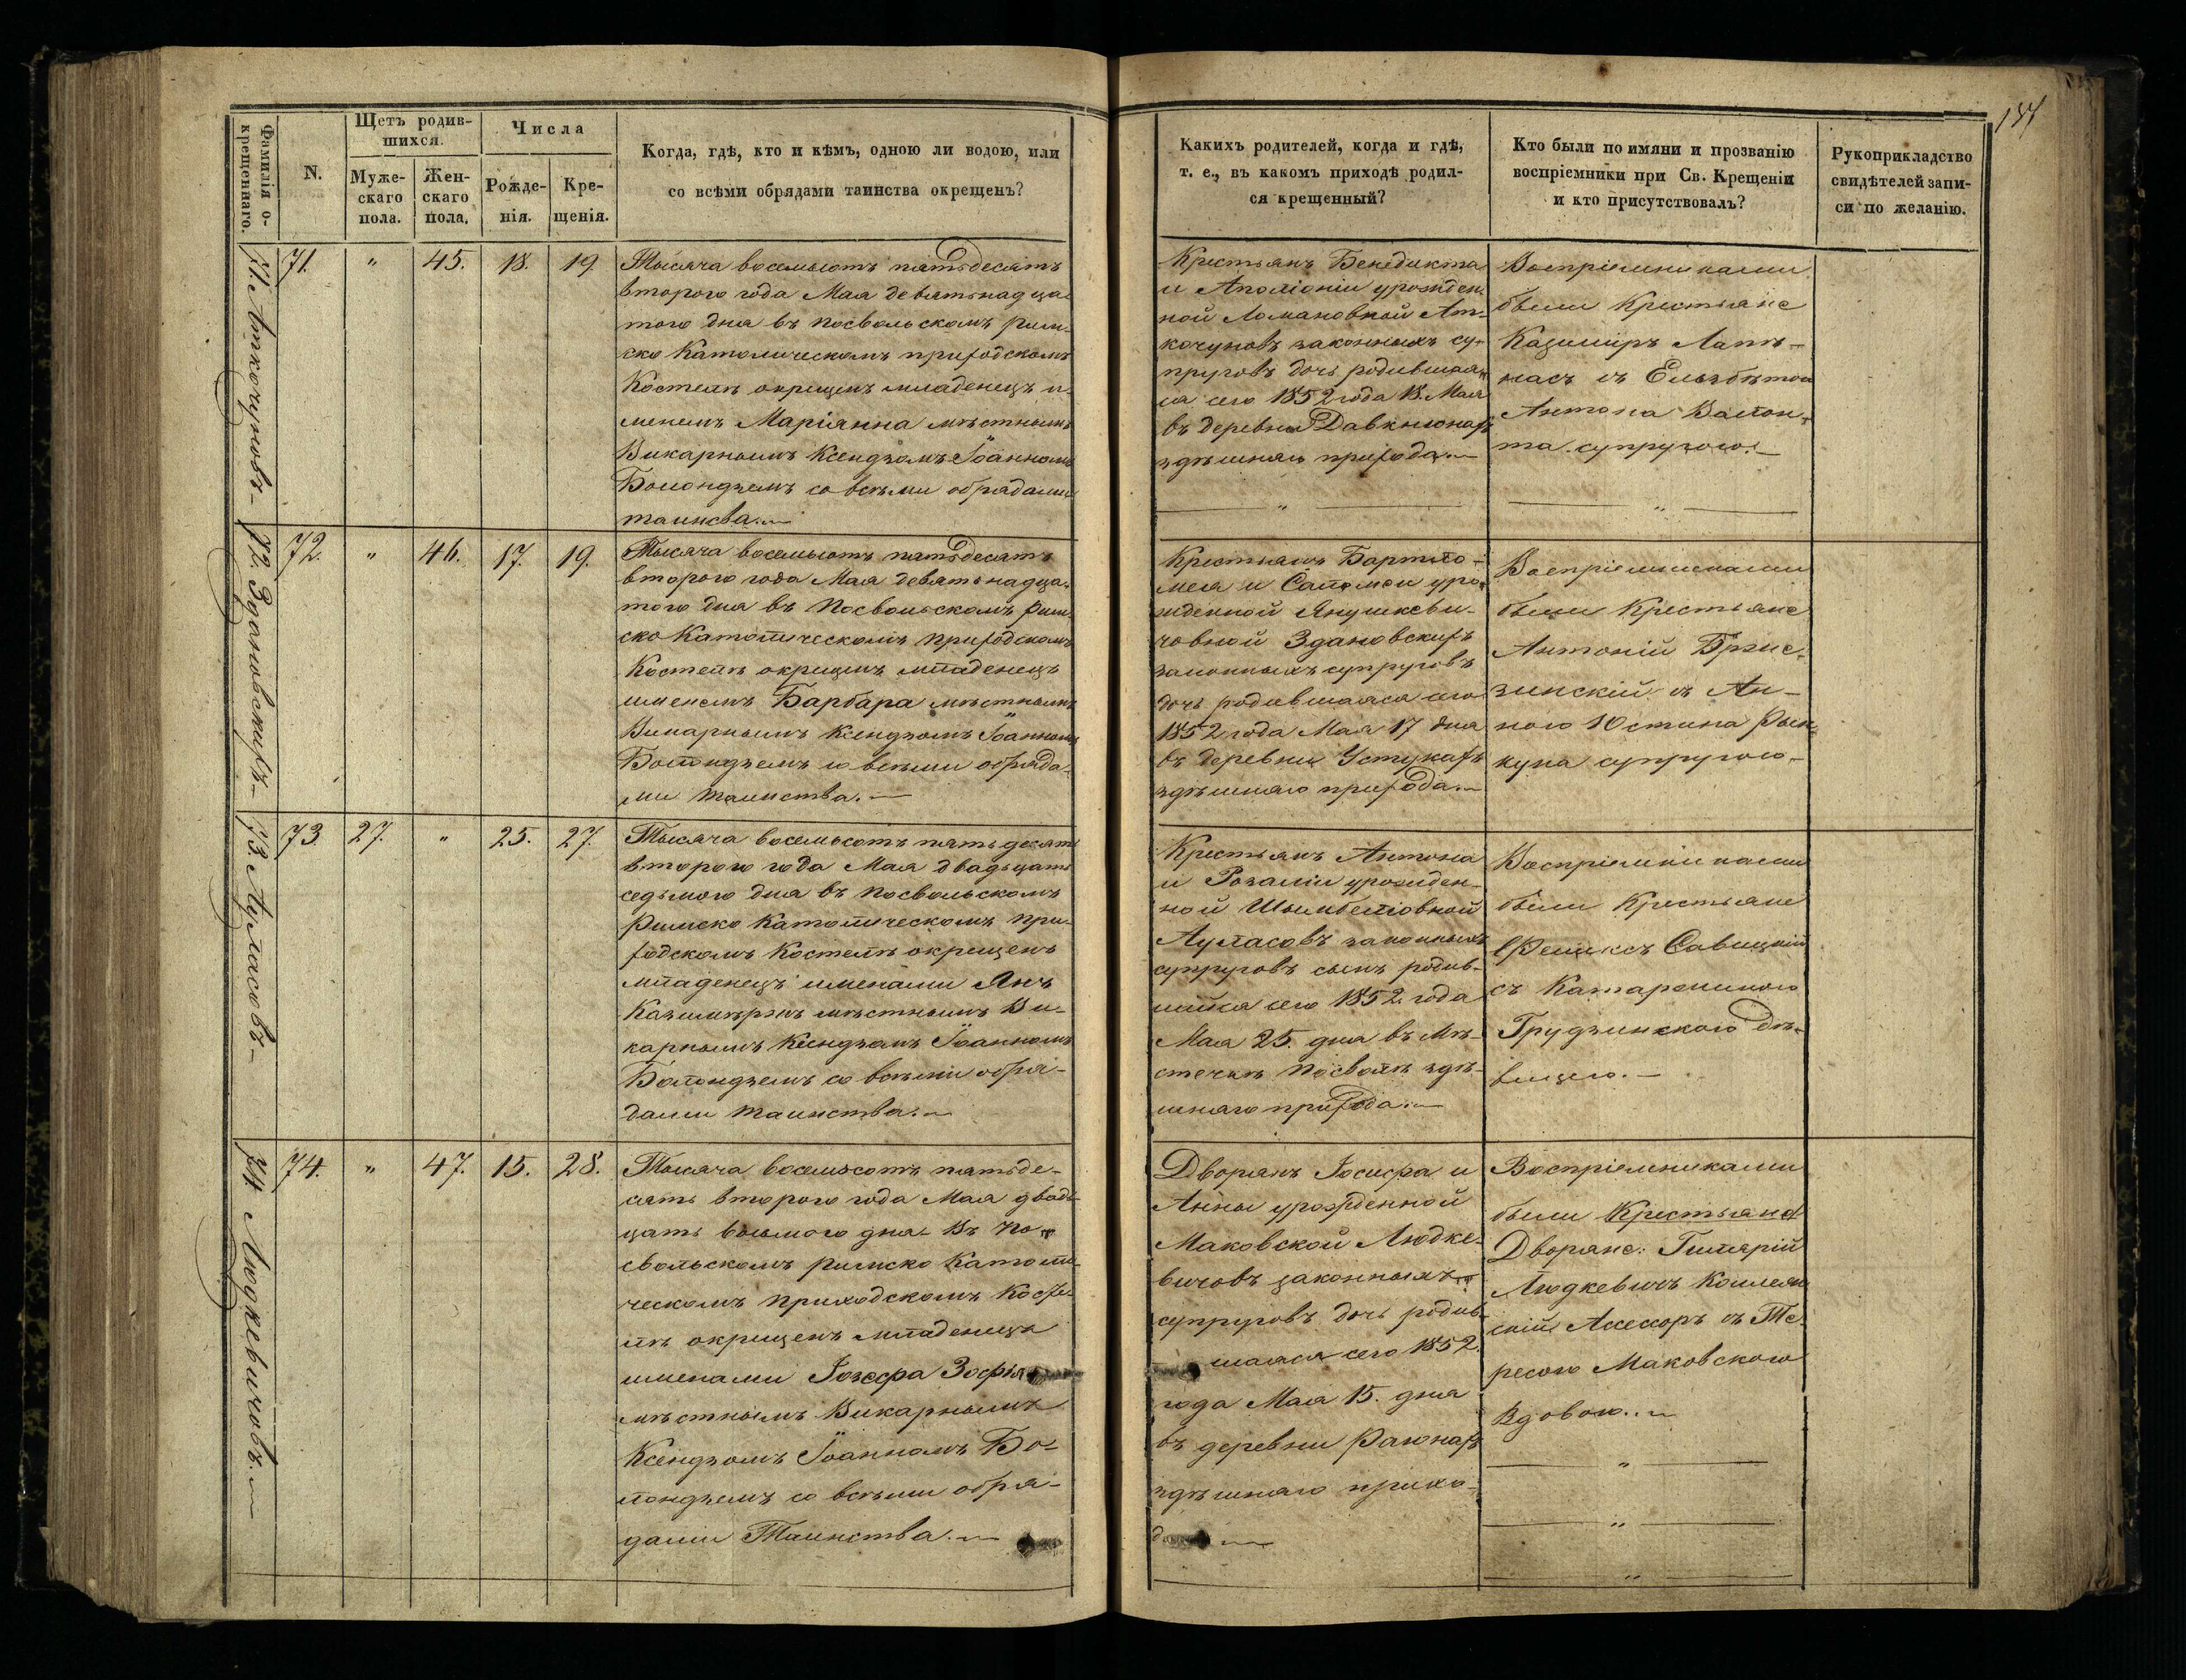 134
Фамилія о-
крещеннаго.
N.
Щетъ родив-
шихся.
Муже-
скаго
пола.
Жен-
скаго
пола.
Числа
Рожде-
нія.
Кре-
щенія.
Когда, гдѣ, кто и кѣмъ, одною ли водою, или
со всѣми обрядами таинства окрещенъ?
Какихъ родителей, когда и гдѣ,
т. е., въ какомъ приходѣ родил-
ся крещенный?
Кто были по имяни и прозванію
воспріемники при Св. Крещеніи
и кто присутствовалъ?
Рукоприкладство
свидѣтелей запи-
си по желанію.
71. Аткочуновъ
71.
"
45.
18.
19.
Тысяча восемьсотъ пятьдесятъ
втораго года Мая девятнадца-
того дня въ Посвольскомъ рим-
ско Католическомъ приходскомъ
Костелѣ окрещенъ младенецъ и-
менемъ Маріянна мѣстнымъ
Викарнымъ Ксендзомъ Іоанномъ
Болондземъ со всѣми обрядами
таинсва.
Крестьянъ Бенедикта
и Аполіоніи урожден-
ной Ломановной Ат-
кочуновъ законныхъ су-
пруговъ дочь родившая-
ся сего 1852 года 18. Мая
въ деревни Давкнюнахъ
здѣшняго прихода.
Воспріемниками
были Крестьяне
Казиміръ Лапѣ-
насъ съ Ельзбѣтою
Антона Валон-
та супругою.
72. Здановскихъ
72.
"
46.
17.
19.
Тысяча восемьсотъ пятьдесятъ
втораго года Мая девятнадца-
того дня въ Посвольскомъ рим-
ско Католическомъ приходскомъ
Костелѣ окрещенъ младенецъ
именемъ Барбара мѣстнымъ
Викарнымъ Ксендзомъ Іоанномъ
Болондземъ со всѣми обряда-
ми таинства.
Крестьянъ Бартло-
мея и Саломеи уро-
жденной Янушкеви-
човной Здановскихъ
законныхъ супруговъ
дочь родившаяся сего
1852 года Мая 17 дня
въ деревни Устукахъ
здѣшняго прихода.
Воспріемниками
были Крестьяне
Антоній Бржe-
зинскій съ Ан-
ною Юстина Рын-
куна супругою
73. Аулясовъ
73
27.
"
25.
27.
Тысяча восемьсотъ пятьдесятъ
втораго года Мая двадцать
седьмого дня въ Посвольскомъ
римско Католическомъ при-
ходскомъ Костелѣ окрещенъ
младенецъ именами Янъ
Казимѣржъ мѣстнымъ Ви-
карнымъ Ксендзомъ Іоанномъ
Болондземъ со всѣми обря-
дами таинства.
Крестьянъ Антона
и Розаліи урожден-
ной Шымбеліовной
Аулясовъ законныхъ
супруговъ сынъ родив-
шійся сего 1852 года
Мая 25. дня въ Мѣ-
стечкѣ Посволѣ здѣ-
шняго прихода.
Воспріемниками
были Крестьяне
Феликсъ Савицкій
съ Катарениною
Грудзинскою дѣ-
вицею.
74 Людкевичовъ.
74.
"
47.
15.
28.
Тысяча восемьсотъ пятьде-
сятъ втораго года Мая двад-
цать восьмого дня въ По-
свольскомъ римско Католи-
ческомъ приходскомъ Косте-
лѣ окрещенъ младенецъ
именами Іозефа Зофія
мѣстнымъ Викарнымъ
Ксендзомъ Іоанномъ Бо-
лондземъ со всѣми обря-
дами Таинства.
Дворянъ Іосифа и
Анны урожденной
Маковской Людке-
вичовъ законныхъ
супруговъ дочь родив-
шаяся сего 1852.
года Мая 15. дня
въ деревни Раюнахъ
здѣшняго прихо-
Воспріемниками
были Крестьяне
Дворяне: Гилярій
Людкевичъ Коллеж-
скій Ассесоръ съ Те-
ресою Маковскою
Вдовою.